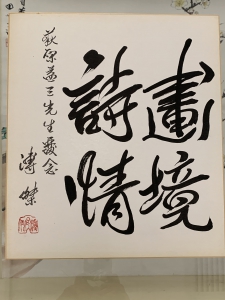 畫境
詩情
荻原益三先生發念
溥傑